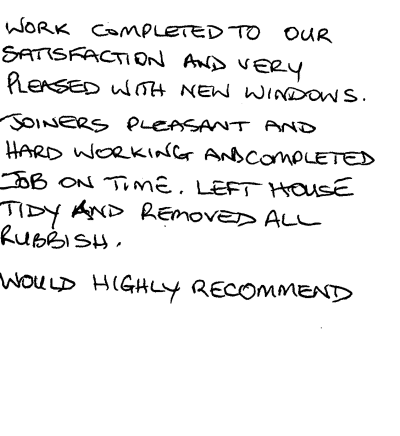 WORK COMPLETED TO OUR
SATISFACTION AND VERY
PLEASED WITH NEW WINDOWS.
JOINERS PLEASANT AND
HARD WORKING AND COMPLETED
JOB ON TIME. LEFT HOUSE
TIDY AND REMOVED ALL
RUBBISH.
WOULD HIGHLY RECOMMEND